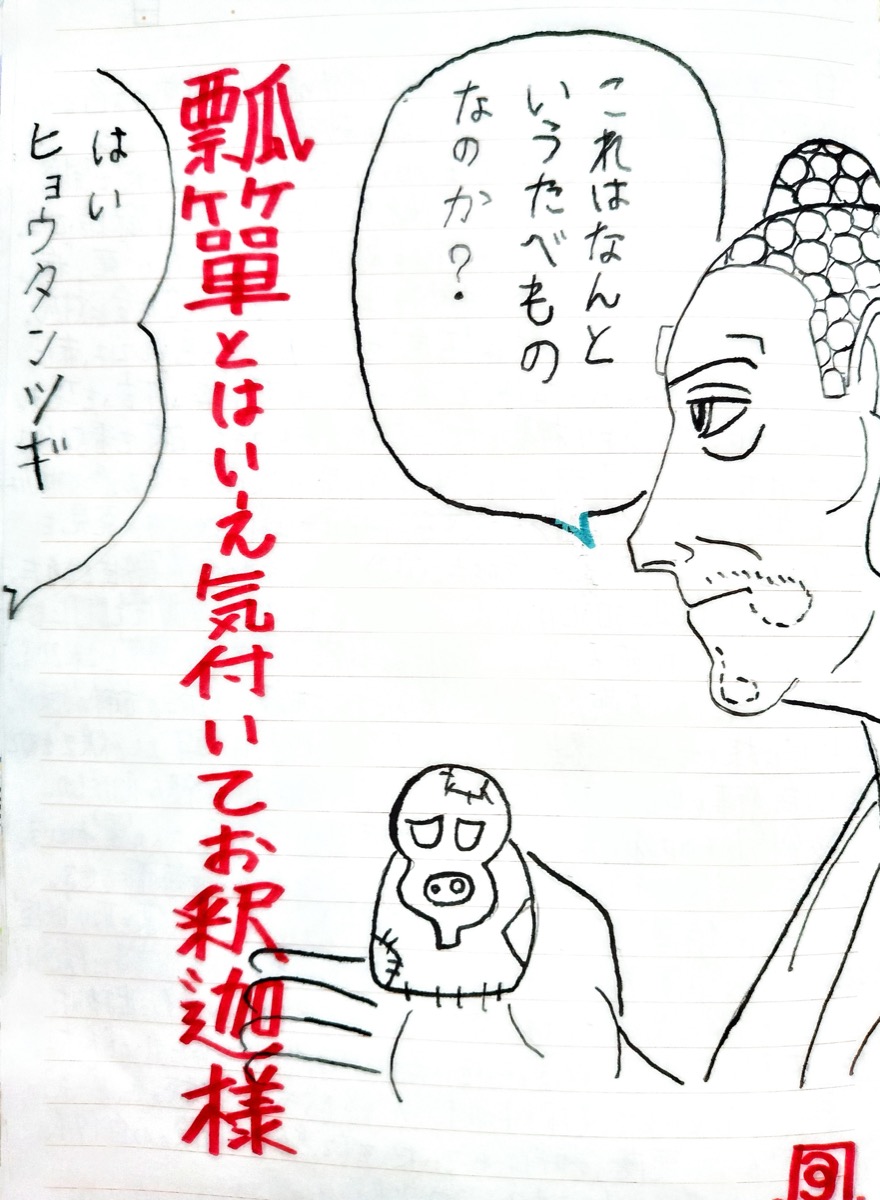 これはなんと
いうたべもの
なのか？
瓢箪とはいえ気付いてお釈迦様
はい
ヒョウタンツギ